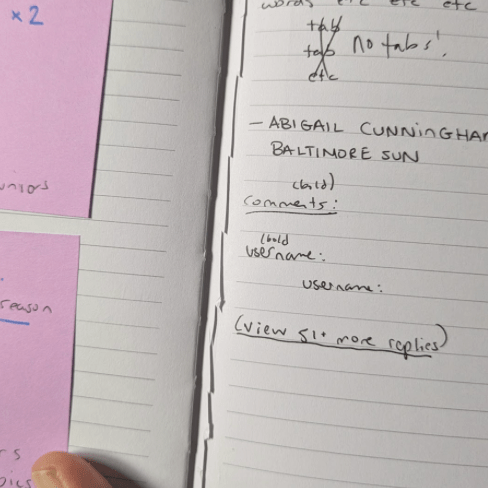 × 2
uniors
reason
rs
pics
words etc etc etc
tab
tab no tabs!
etc
– ABIGAIL CUNNINGHAM
BALTIMORE SUN
(bold)
comments:
(bold
username:
username:
(view 51+ more replies)